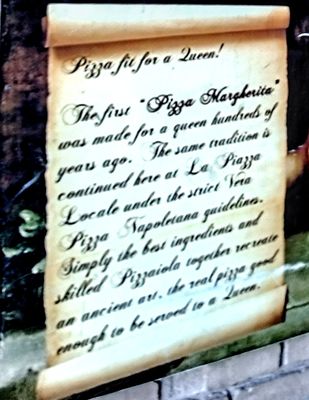 Pizza fit for a Queen!
The first "Pizza Margherita"
was made for a queen hundreds of
years ago. The same tradition is
continued here at La Piazza
Locale under the strict Vera
Pizza Napoletana guidelines.
Simply the best ingredients and
skilled Pizzaiola together recreate
an ancient art, the real pizza good
enough to be served to a Queen.